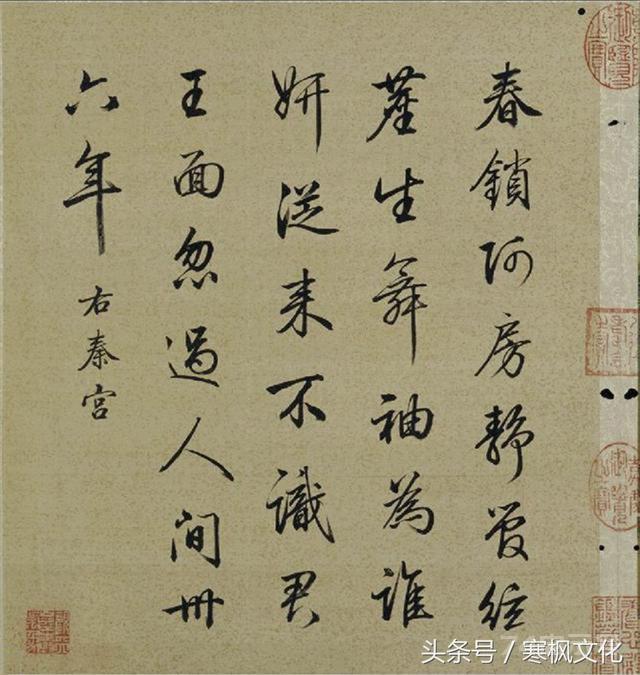 春鎖阿房静管絃
塵生舞袖為誰
妍從来不識君
王面忽過人間卅
六年
右秦宮
头条号 / 寒枫文化